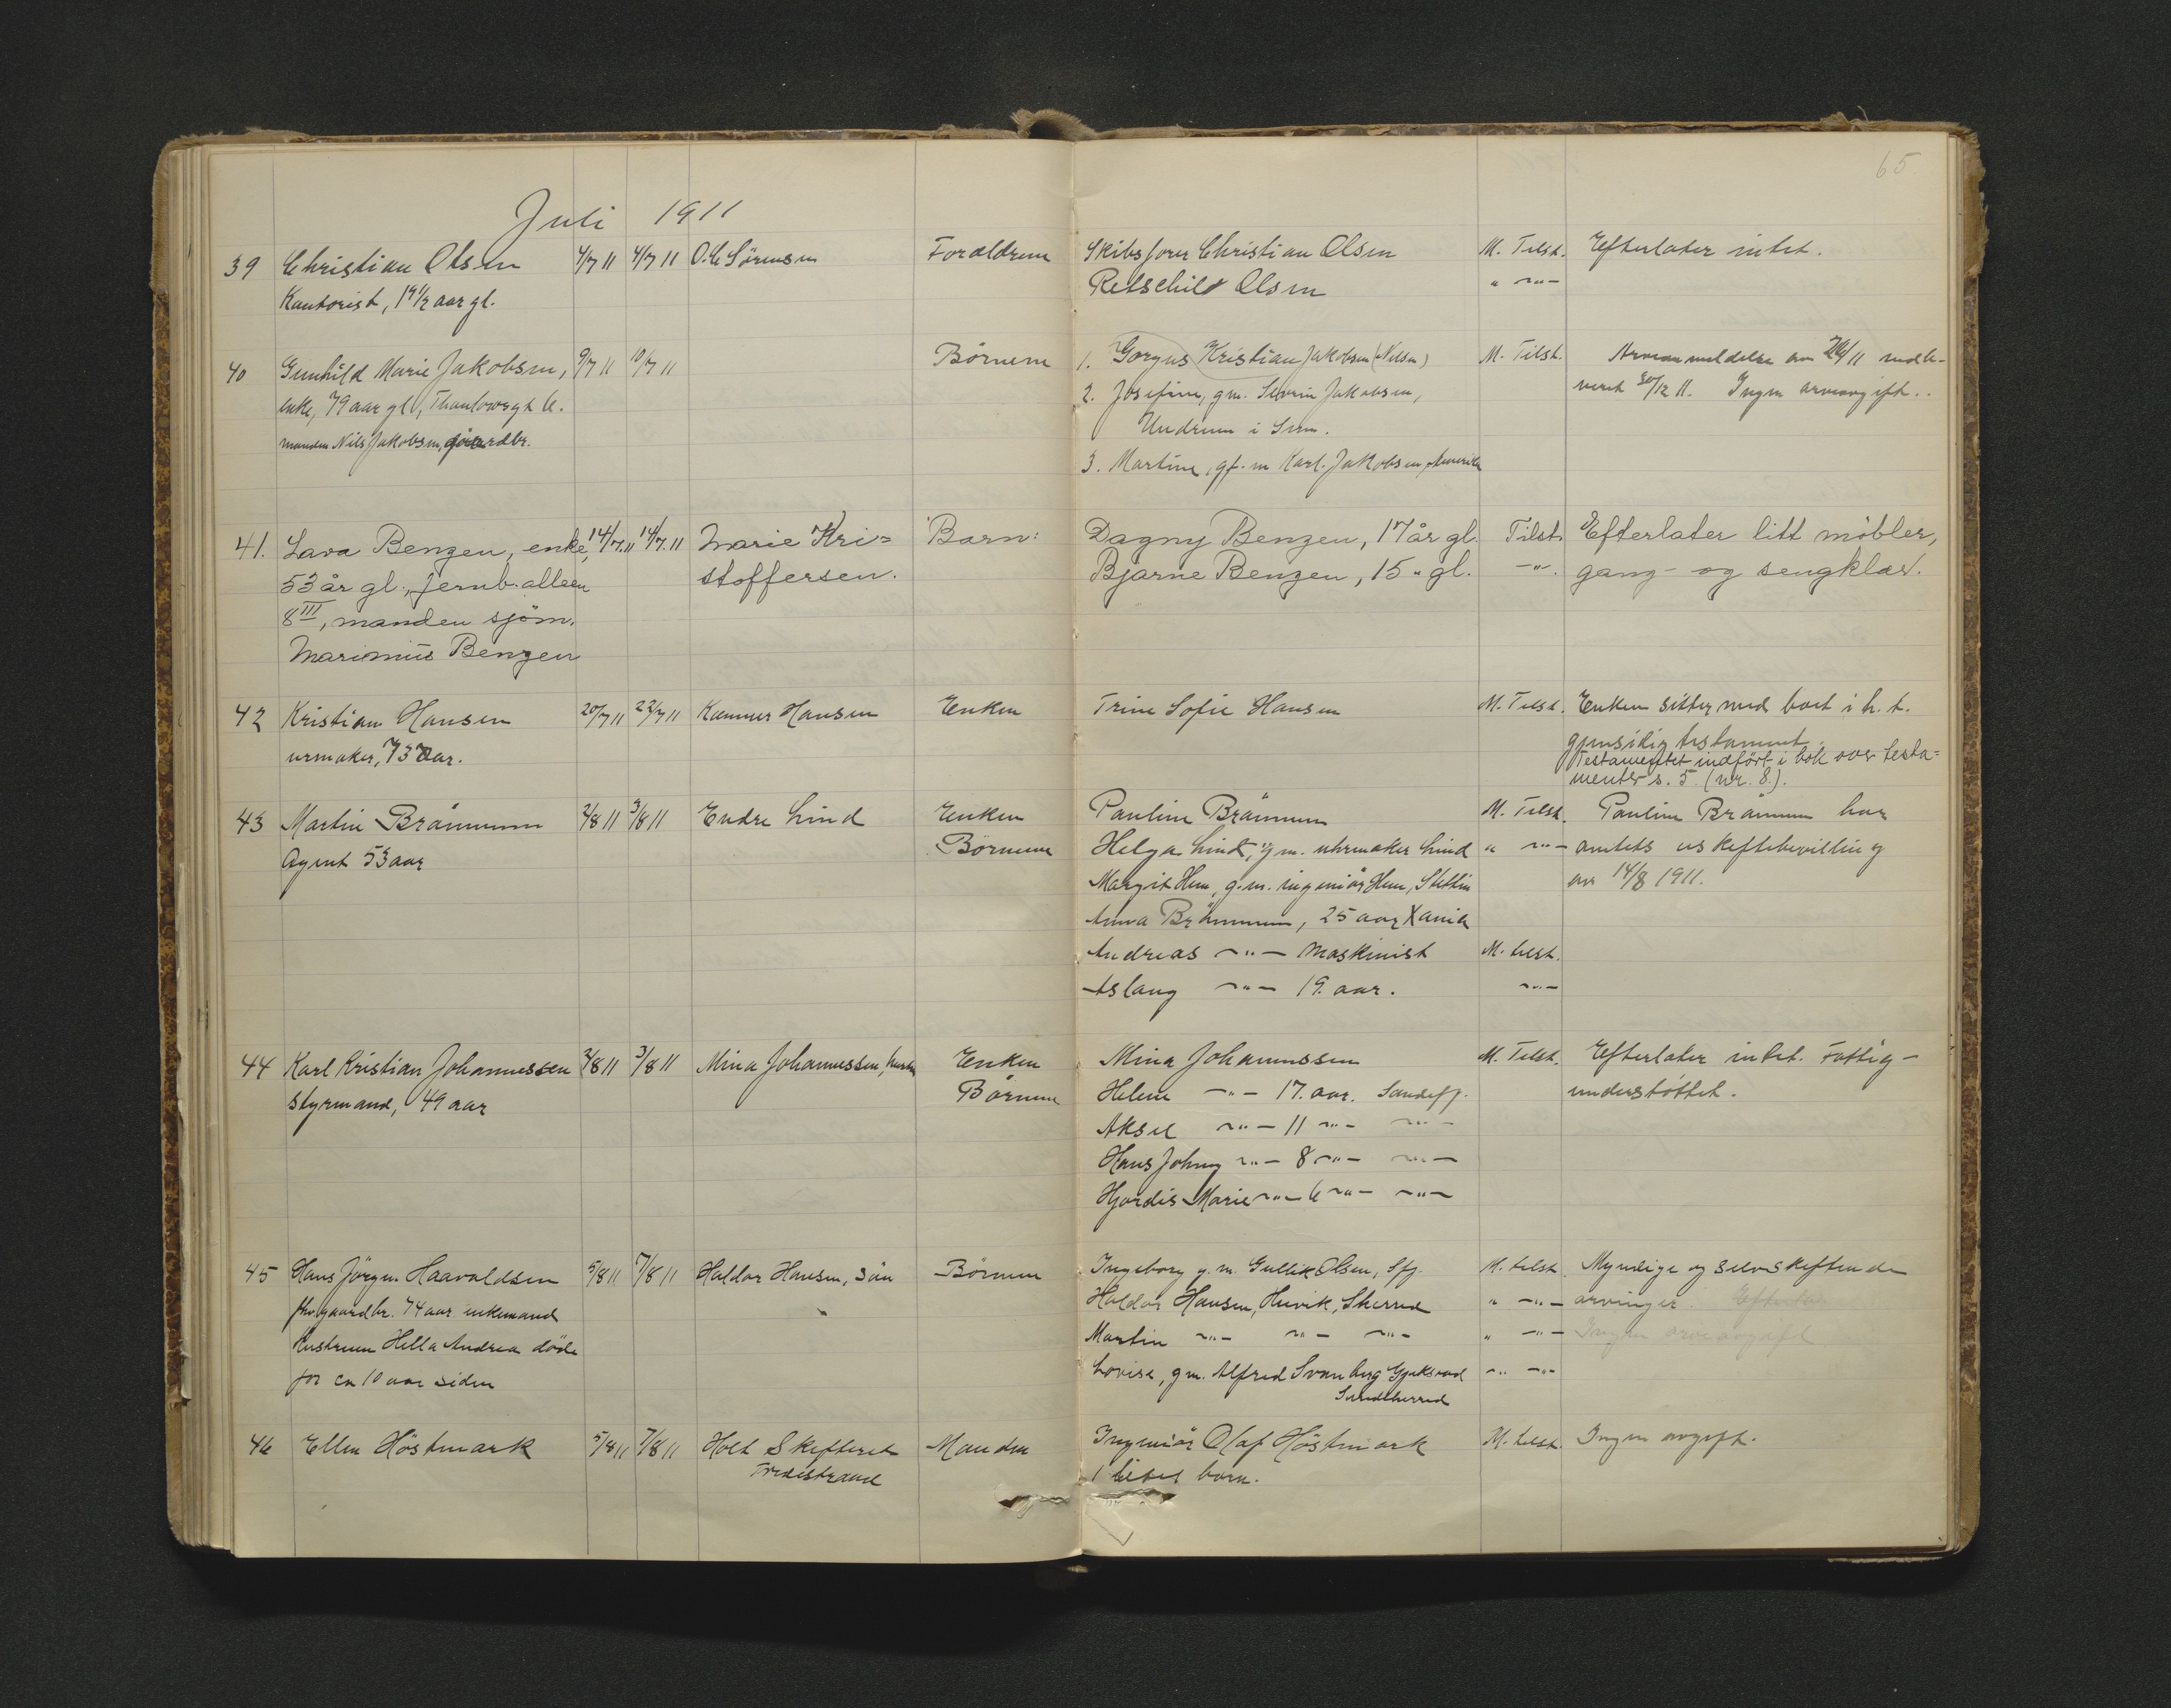 65
Juli 1911
39 Christian Olsen 4/7 11 4/7 11 O. C Sörensen Forældrene Skibsfører Christian Olsen M. Tilst. Efterlater intet.
Kontorist, 19 1/2 aar gl. Olsen " -"-
40 Gunhild Marie Jakobsen, 9/7 11 10/7 11 Börnene 1. Kristian Jakobsen (Nilsen) M. Tilst. Arveanmeldelse av /11 indle-
enke, 79 aar gl, Thaulowsgt 6. 2. Josefine, gm. Severin Jakobsen, veret 30/12 11. Ingen arveavgift.
manden Nils Jakobsen, gaardbr. Undrum i Sem.
3. Martine, gf. m Karl Jakobsen, Amerika
41. Lava Benzen, enke, 14/7.11 14/7.11 Marie Kri= Barn: Dagny Benzen, 17 år gl. Tilst. Efterlater litt möbler,
53 år gl., Jernb.alleen stoffersen. Bjarne Benzen, 15 " gl. -"- gang- og sengklær.
8 III, manden sjöm.
Marinius Benzen
42 Kristian Hansen 20/7 11 22/7 11 Hansen Enken Trine Sofie Hansen M. Tilst. Enken sitter med boet i h. t.
urmaker, 73 aar. gjensidig testament.
Testamentet indfört i bok over testa=
menter s. 5 (nr. 8.).
43 Martin Brånnum 2/8 11 3/8 11 Endre Lind Enken Pauline Brånnum M. Tilst. Pauline Brånnum har
Agent 53 aar Börnene Helga Lind, gm. uhrmaker Lind " -"- amtets uskiftebevilling
Margit Hem, g.m. ingeniör Hem, Stettin av 14/8 1911.
Anna Brånnum, 25 aar Xania
Andreas -"- maskinist M. tilst.
Aslaug -"- 19. aar. -"-
44 Karl Kristian Johannessen 2/8 11 3/8 11 Mina Johannessen, hustru Enken Mina Johannessen M. Tilst. Efterlater intet. Fattig-
styrmand, 49 aar Börnene Helene -"- 17. aar. Sandefj. understöttet.
Aksel -"- 11 -"- -"-
Hans Johny -"- 8 -"- -"-
Hjordis Marie -"- 6 -"- -"-
45 Hans Jörgen Haavaldsen 5/8 11 7/8 11 Haldor Hansen, sön Börnene Ingeborg g. m. Gullik Olsen, Sfj. M. tilst. Myndige og selvskiftende
fhv. gaardbr. 74 aar enkemand Haldor Hansen, Huvik, Sherred " -"- arvinger. Efterlater
Hustruen Hella Andrea döde Martin -"- -"- -"- " -"- Ingen arveavgift
for ca 10 aar siden Lovise, gm. Alfred Svanberg Gjeksrød -"- -"-
Sandeherred
46 Ellen Höstmark 5/8 11 7/8 11 Holt Skifteret Manden Ingeniör Olaf Höstmark M. tilst. Ingen avgift.
Tvedestrand 1 litet barn.